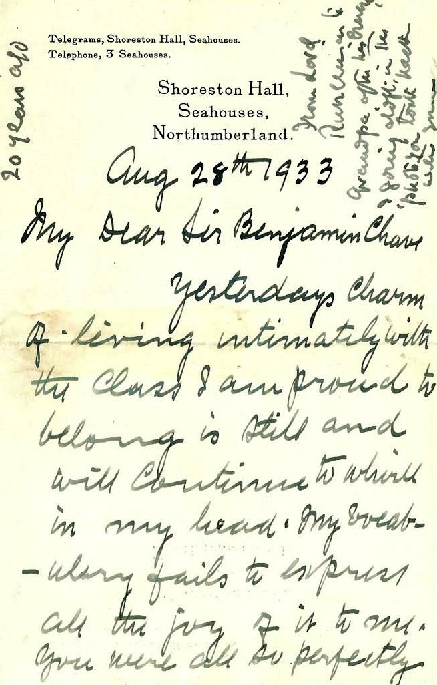 Telegrams, Shoreston Hall, Seahouses.
Telephone, 3 Seahouses.
Shoreston Hall,
Seahouses,
Northumberland.
20 years ago
From Lord
Runciman to
Grandpa after his having
& going aloft in the
photo he took
Aug 28th 1933
My Dear Sir Benjamin Chave
Yesterdays charm
of living intimately with
the Class I am proud to
belong is still and
will Continue to whirl
in my head. My Vocab-
-ulary fails to express
all the joy of it to me.
You were all so perfectly